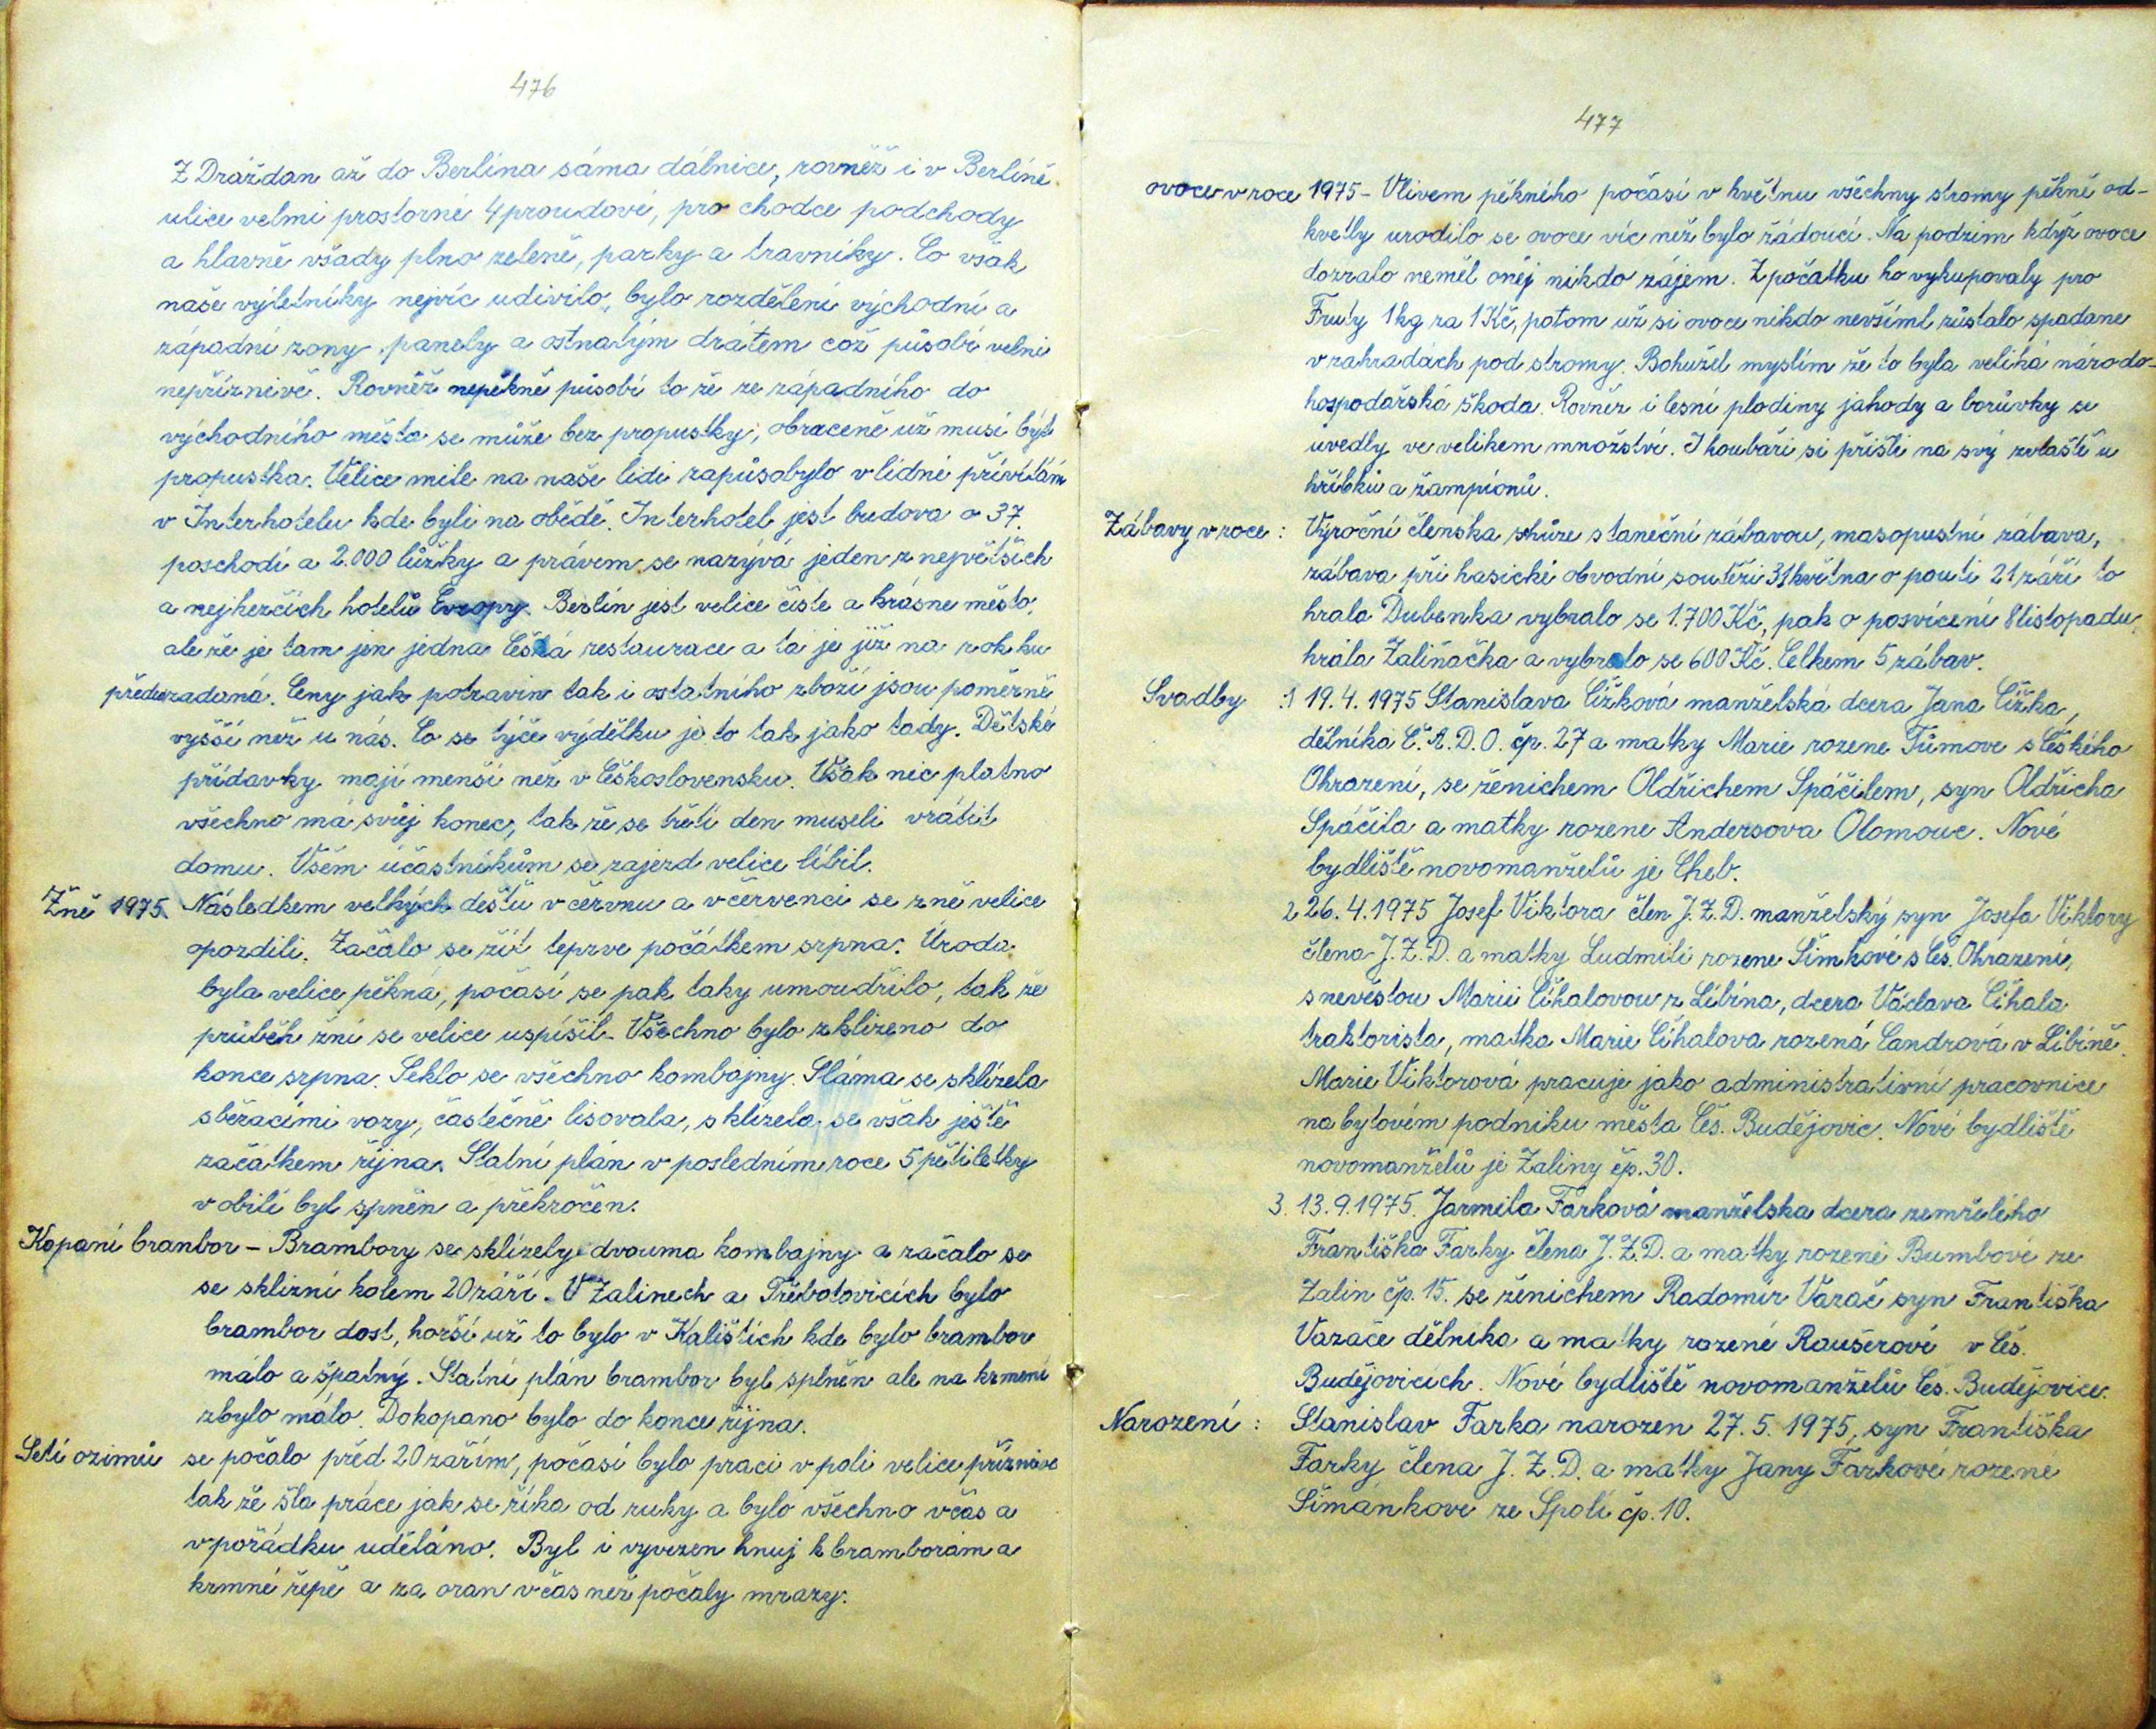 476
Z Drážďan až do Berlína sáma dálnice, rovněž i v Berlíně
ulice velmi prostorné 4 proudové, pro chodce podchody
a hlavně všady plno zeleně, parky a travníky. Co však
naše výletníky nejvíc udivilo, bylo rozdělení východní a
západní zony panely a ostnatým drátem což působí velmi
nepříznivě. Rovněž nepěkně působí to že ze západního do
východního města se může bez propustky, obraceně už musí být
propustka. Velice mile na naše lidi zapůsobylo vlídné přivítání
v Interhotelu kde byli na obědě. Interhotel jest budova o 37
poschodí a 2.000 lůžky a právem se nazývá jeden z největších
a nejhezčích hotelů Evropy. Berlín jest velice čisté a krásne město,
ale že je tam jen jedna Česká restaurace a ta je již na rok ku
předu zadaná. Ceny jak potravin tak i ostatního zboží jsou poměrně
vyšší než u nás. Co se týče výdělku je to tak jako tady. Dětské
přídavky mají menší než v Československu. Však nic platno
všechno má svůj konec, tak že se třetí den museli vrátit
domu. Všem účastníkům se zajezd velice líbil.
Žně 1975. Následkem velkých dešťů v červnu a v červenci se žně velice
opozdili. Začalo se žít teprve počátkem srpna. Úroda
byla velice pěkná, počasí se pak taky umoudřilo, tak že
průběh žní se velice uspíšil. Všechno bylo zklizeno do
konce srpna. Seklo se všechno kombajny. Sláma se sklízela
sběracími vozy, častečně lisovala, sklízela se však ještě
začátkem října. Statní plán v posledním roce 5 pětiletky
v obilí byl spněn a překročen.
Kopaní branbor - Brambory se sklízely dvouma kombajny a začalo se
se sklizní kolem 20 září. V Zalinech a Třebotovicích bylo
brambor dost, horší už to bylo v Kalištích kde bylo brambor
málo a špatný. Statní plán brambor byl splněn ale na krmení
zbylo málo. Dokopano bylo do konce října.
Setí ozimů se počalo před 20 zářím, počasí bylo praci v poli velice příznivé
tak že šla práce jak se říka od ruky a bylo všechno včas a
v pořádku uděláno. Byl i vyvezen hnuj k bramborám a
krmné řepě a za oran včas než počaly mrazy.
477
ovoce v roce 1975 - Vlivem pěkného počasí v květnu všechny stromy pěkně od-
kvetly urodilo se ovoce víc než bylo žádoucí. Na podzim když ovoce
dozralo neměl oněj nikdo zájem. Zpočatku ho vykupovaly pro
Fruty 1 kg za 1 Kč, potom už si ovoce nikdo nevšíml zůstalo spadane
v zahradách pod stromy. Bohužel myslím že to byla veliká národo-
hospodářská škoda. Rovněz i lesní plodiny jahody a borůvky se
uvedly ve velikem množství. I houbaři si přišli na svý zvlaště u
hříbků a žampionů.
Zábavy v roce: Výroční členska shůze staneční zábavou, masopustní zábava,
zábava při hasické obvodní soutěži 31 května o pouti 21 září to
hrala Dubenka vybralo se 1.700 Kč, pak o posvícení 8 listopadu
hrála Zaliňačka a vybralo se 600 Kč. Celkem 5 zábav.
Svadby 1 19.4.1975 Stanislava Čížková manželská dcera Jana Čížka,
dělníka Č.A.D.O. čp. 27 a matky Marie rozene Tůmove s Českého
Ohrazení, se ženichem Oldřichem Spáčilem, syn Oldřicha
Spáčila a matky rozene Andersova Olomouc. Nové
bydliště novomanželů je Cheb.
2 26.4.1975 Josef Viktora člen J.Z.D. manželský syn Josefa Viktory
člena J.Z.D. a matky Ludmili rozene Šimkové s Čes. Ohrazení,
s nevěstou Marií Číhalovou z Libína, dcera Václava Číhala
traktorista, matka Marie Číhalova rozená Candrová v Libíně.
Marie Viktorová pracuje jako administrativní pracovnice
na bytovém podniku města Čes. Budějovic. Nové bydliště
novomanželů je Zaliny čp. 30.
3. 13.9.1975. Jarmila Farková manželska dcera zemřelého
Františka Farky člena J.Z.D. a matky rozené Bumbové ze
Zalin čp. 15. se ženichem Radomír Vazač syn Františka
Vazače dělníka a matky rozené Raušerové v Čes.
Budějovicích. Nové bydliště novomanželů Čes. Budějovice.
Narození: Stanislav Farka narozen 27.5.1975, syn Františka
Farky člena J.Z.D. a matky Jany Farkové rozene
Šimánkove ze Spolí čp. 10.